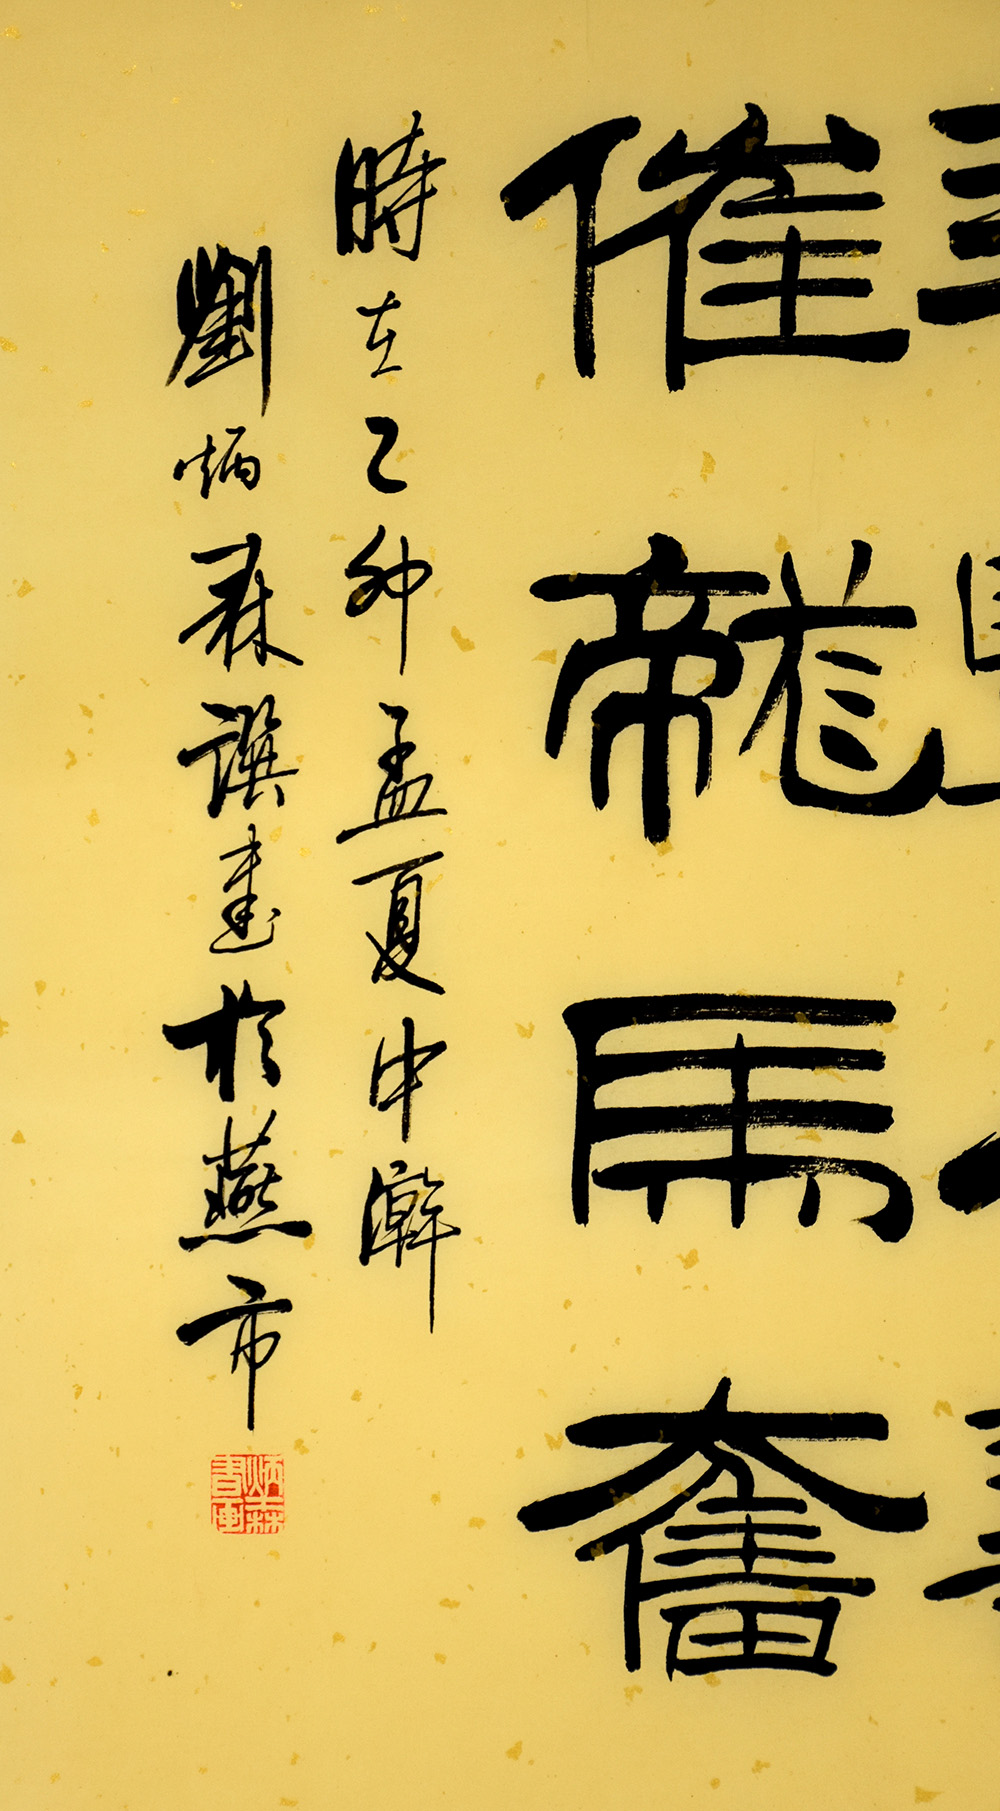 催龍馬奮
時在乙卯孟夏中澣
劉炳森譔書於燕市
炳森書画